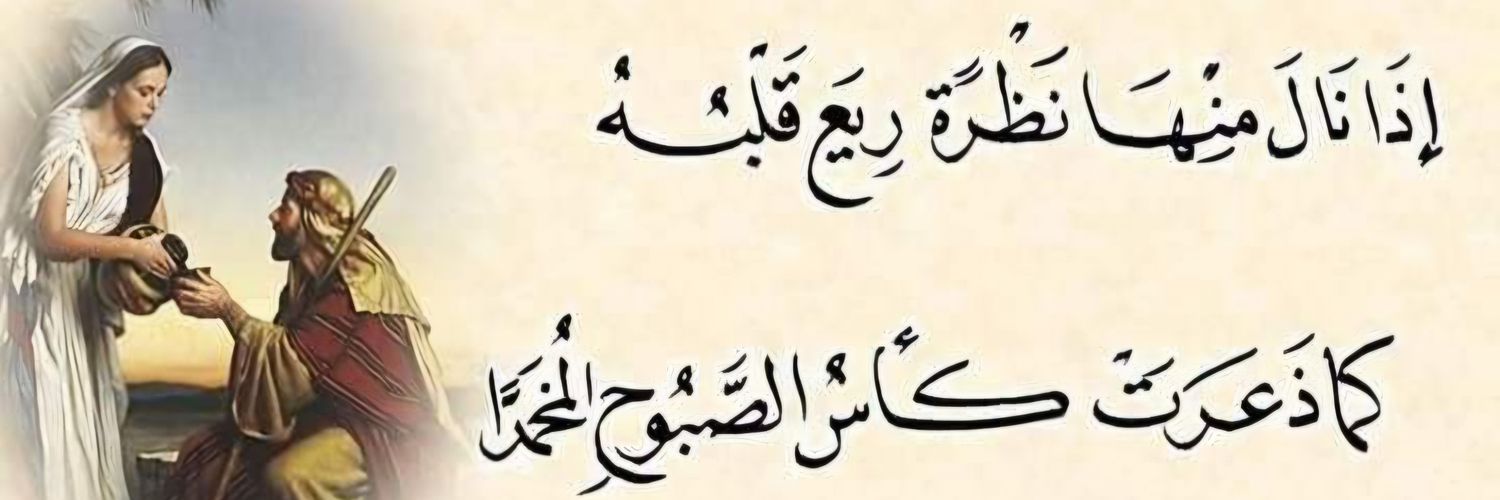 إِذَا نَالَ مِنْهَا نَظْرَةً رِيعَ قَلْبُهُ
كَمَا ذَعَرَتْ كَأْسُ الصَّبُوحِ المُخَمَّرَا